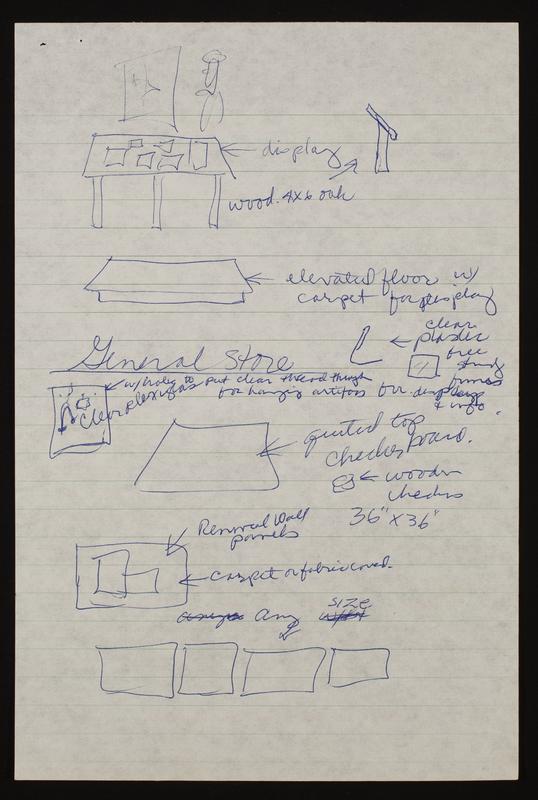 display
wood. 4x6 oak
elevated floor w/
carpet for display
General Store
clear
plastic
free
frames
for display
& info.
w/holes to put clear thread through
for hanging artifacts
clear plexiglas
quilted top
checker board.
wooden
checkers
36" x 36"
Removal Wall
panels
carpet or fabric covered.
Any size